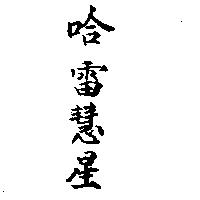 哈雷慧星